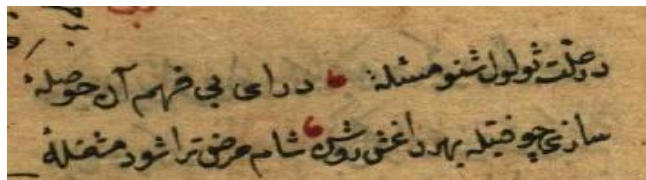 در علت ثولول شنو مسئلهٔ در دای بی فهم آن حوصلهٔ
سازی چو فتیله بهر داغش روشن شام مرض ترا شود مشعلهٔ